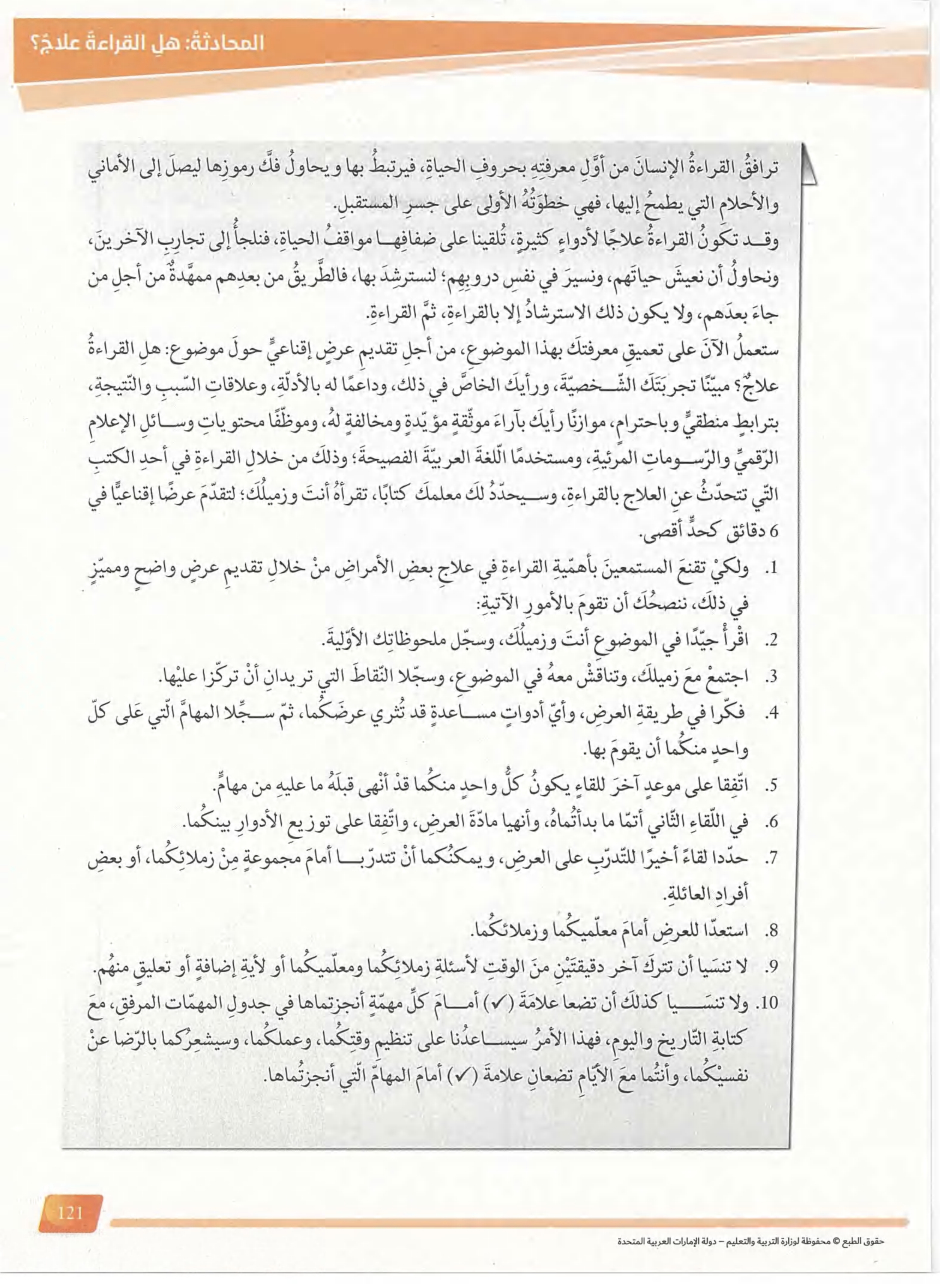 المحادثةُ: هلِ القراءةُ علاجٌ؟
ترافقُ القراءةُ الإنسانَ من أوَّلِ معرفتِهِ بحروفِ الحياةِ، فيرتبطُ بها ويحاولُ فكَّ رموزِها ليصلَ إلى الأماني
والأحلامِ التي يطمحُ إليها، فهي خطوَتُهُ الأولى على جسرِ المستقبلِ.
وقــد تكونُ القراءةُ علاجًا لأدواءٍ كثيرةٍ، تُلقينا على ضفافِهــا مواقفُ الحياةِ، فنلجأُ إلى تجاربِ الآخرينَ،
ونحاولُ أن نعيشَ حياتَهم، ونسيرَ في نفسِ دروبِهِم؛ لنسترشِدَ بها، فالطَّريقُ من بعدهم ممهَّدةٌ من أجلِ من
جاءَ بعدَهم، ولا يكون ذلك الاسترشادُ إلا بالقراءةِ، ثمَّ القراءةِ.
ستعملُ الآنَ على تعميقِ معرفتكَ بهذا الموضوعِ، من أجلِ تقديمِ عرضٍ إقناعيٍّ حولَ موضوع: هلِ القراءةُ
علاجٌ؟ مبيّنًا تجربَتَكَ الشّــخصيّةَ، ورأيكَ الخاصَّ في ذلك، وداعمًا له بالأدلّةِ، وعلاقاتِ السّببِ والنّتيجةِ،
بترابطٍ منطقيٍّ وباحترامٍ، موازنًا رأيكَ بآراءَ موثّقةٍ مؤيّدةٍ ومخالفةٍ لهُ، وموظّفًا محتوياتِ وســائلِ الإعلامِ
الرّقميِّ والرّســوماتِ المرئيةِ، ومستخدمًا الّلغةَ العربيّةَ الفصيحةَ؛ وذلكَ من خلالِ القراءةِ في أحدِ الكتبِ
التّي تتحدّثُ عنِ العلاجِ بالقراءةِ، وسـيحدّدُ لكَ معلمكَ كتابًا، تقرأهُ أنتَ وزميلُكَ؛ لتقدّمَ عرضًا إقناعيًّا في
6 دقائق كحدٍّ أقصى.
1. ولكيْ تقنعَ المستمعينَ بأهمّيةِ القراءةِ في علاجِ بعضِ الأمراضِ منْ خلالِ تقديمِ عرضٍ واضحٍ ومميّزٍ
في ذلكَ، ننصحُكَ أن تقومَ بالأمورِ الآتيةِ:
2. اقْرأْ جيّدًا في الموضوعِ أنتَ وزميلُكَ، وسجّل ملحوظاتِك الأوّليةَ.
3. اجتمعْ معَ زميلكَ، وتناقشْ معهُ في الموضوعِ، وسجّلا النّقاطَ التي تريدانِ أنْ تركّزا عليْها.
4. فكّرا في طريقةِ العرضِ، وأيّ أدواتٍ مســاعدةٍ قد تُثري عرضَكُما، ثمّ ســجِّلا المهامَّ الّتي عَلى كلّ
واحدٍ منكُما أن يقومَ بها.
5. اتّفِقا على موعدٍ آخرَ للقاءٍ يكونُ كلُّ واحدٍ منكُما قدْ أنْهى قبلَهُ ما عليهِ من مهامٍّ.
6. في اللّقاءِ الثّاني أتمّا ما بدأتُماهُ، وأنهيا مادّةَ العرضِ، واتّفِقا على توزيعِ الأدوارِ بينكُما.
7. حدّدا لقاءً أخيرًا للتّدرّبِ على العرضِ، ويمكنُكما أنْ تتدرّبــا أمامَ مجموعةٍ مِنْ زملائِكُما، أو بعضِ
أفرادِ العائلةِ.
8. استعدّا للعرضِ أمامَ معلّميكُما وزملائكُما.
9. لا تنسَيا أن تتركَ آخر دقيقتَيْنِ منَ الوقتِ لأسئلةِ زملائِكُما ومعلّميكُما أو لأيةِ إضافةٍ أو تعليقٍ منهُم.
10. ولا تنسَــيا كذلكَ أن تضعا علامَةَ (✓) أمــامَ كلِّ مهمّةٍ أنجزتماها في جدولِ المهمّات المرفقِ، معَ
كتابةِ التّاريخِ واليومِ، فهذا الأمرُ سيســاعدُنا على تنظيمِ وقتِكُما، وعملكُما، وسيشعِرُكما بالرّضا عنْ
نفسيْكُما، وأنتُما معَ الأيّامِ تضعانِ علامةَ (✓) أمامَ المهامّ الّتي أنجزتُماها.
121
حقوق الطبع © محفوظة لوزارة التربية والتعليم – دولة الإمارات العربية المتحدة